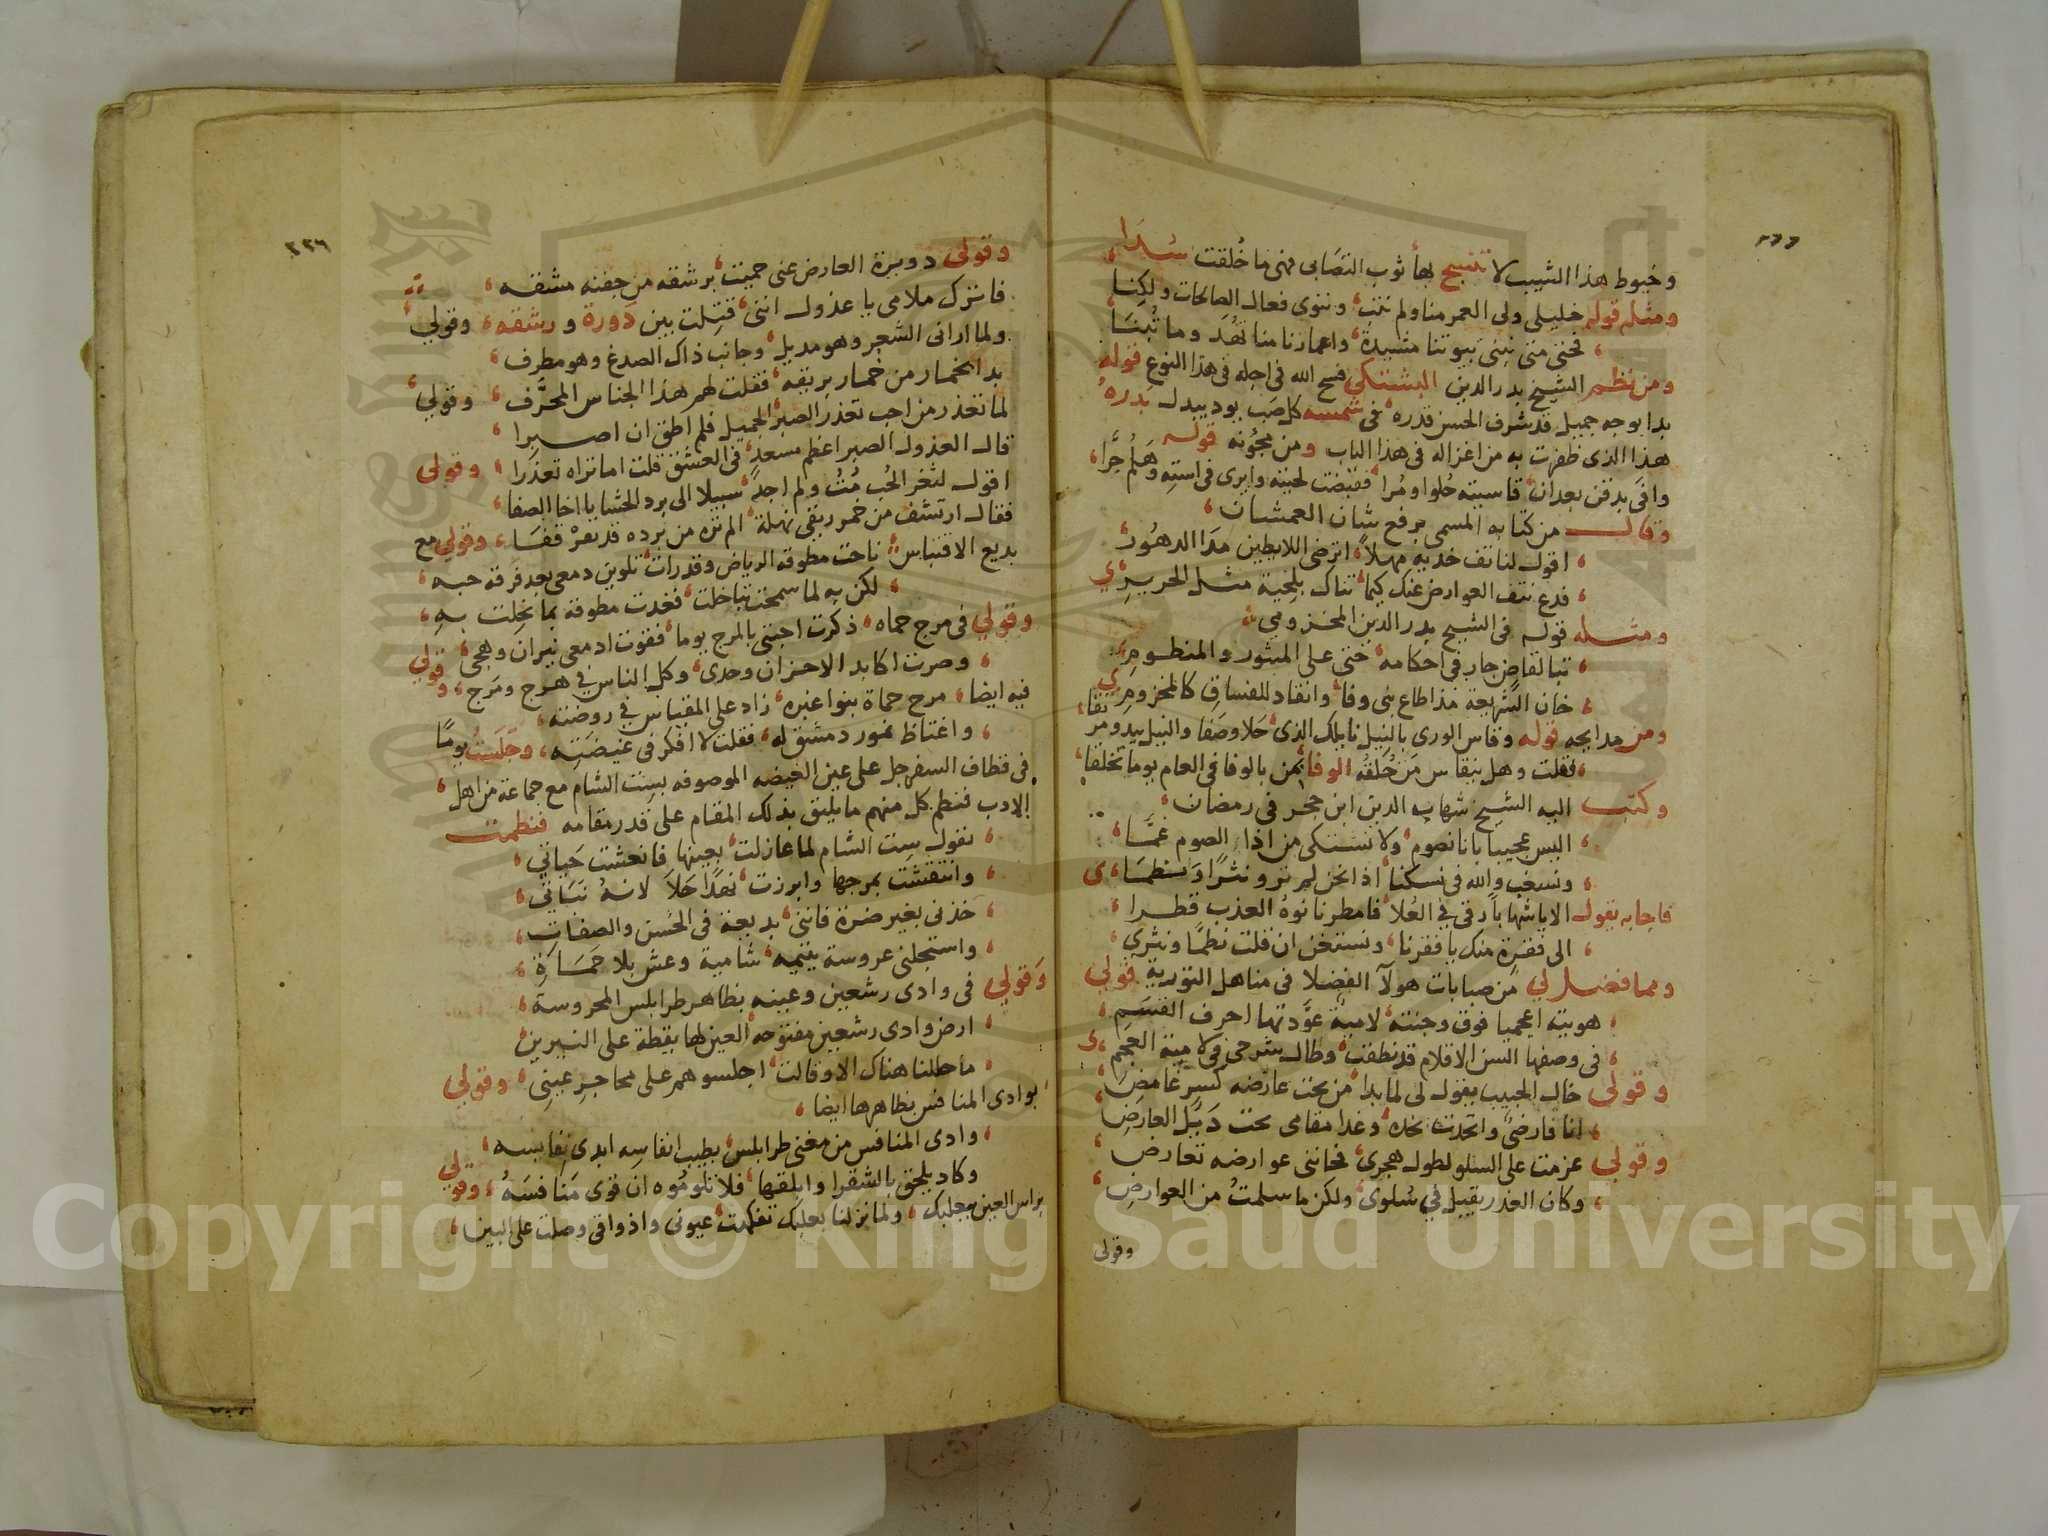 وخيوط هذا الشيب لا تنسج بها ثوب التصابى فهى ما خُلقت سُدا
ومثله قوله خليلى ولى العمر منا ولم نتب وننوى فعال الصالحات ولكنا
فحتى متى نبنى بيوتنا مشيدة واعمارنا منا تهد وما تبنا
ومن نظم الشيخ بدر الدين البشتكى فسح الله فى اجله فى هذا النوع قوله
بدا بوجه جميل قد شرف الحسن قدره فى شمسه كل صب يود يبدل بدره
هذا الذى ظفرت به من اغزاله فى هذا الباب ومن مجونه قوله
وافى بذقن بعد ان قاسيته حُلوا ومُرا فقبضت لحيته وايرى فى استه وهلم جرا
وقال من كتابه المسمى برفع شان العمشان
اقول لناتف خديه مهلا اترضى اللايطين مدا الدهور
فدع نتف العوارض عنك كيما تناك بلحية مثل الحرير
ومثله قوله فى الشيخ بدر الدين المخزومى
تبا لقاض جار فى احكامه حتى على المنثور والمنظوم
خان الشريعة مذ اطاع بنى وفا وانقاد للفساق كالمخزومى
ومن مدايحه قوله وقاس الورى بالنيل نايلك الذى حلا وصفا والنيل يبدو مرنقا
فقلت وهل ينقاس من خُلقُه الوفا بمن بالوفا فى العام يوما تخلقا
وكتب اليه الشيخ شهاب الدين ابن حجر فى رمضان
اليس عجيبا بانا نصوم ولا نشتكى من اذا الصوم غما
ونسغب والله فى نسكنا اذا نحن لم نرو نثرًا ونظما
فاجابه يقول الا يا شهابا رقى فى العُلا فامطرنا نوءُ العذب قطرا
الى فقرة منك يا فقرنا ونستغن ان قلت نظمًا ونثرى
ومما فضل لى من صبابات هولآ الفضلا فى مناهل التورية قولى
هويته اعجميا فوق وجنته لامية عوّدتها احرف القسم
فى وصفها السن الاقلام قد نطقت وطال شرحى فى لامية العجم
وقولى خال الحبيب يقول لى لما بدا من تحت عارضه كسر غامض
انا فارضىٌ واتحدت بخده وغدا مقامى تحت ذيل العارض
وقولى عزمت على السلو لطول هجرى فخانتنى عوارضه تعارض
وكان العذر يقبل فى سلوى ولكن ما سلمتُ من العوارض
وقولى
٣٣٦
وقولى دويرة العارض عنى حميت برشقه من جفنه مشقه
فاترك ملامى يا عذول اننى قتلت بين دورة ورشقه وقولى
ولما ارانى الشعر وهو مديل وجانب ذاك الصدغ وهو مطرف
بدا بخمار من خمار بريقه فقلت لهم هذا الجناس المحرَّف وقولى
لما تعذر من احب تعذر الصبر الجميل فلم اطق ان اصبرا
قال العذول الصبر اعظم مسعد فى العشق قلت اما تراه تعذرا وقولى
اقول لثغر الحُب مُتُّ ولم اجد سبيلا الى برد الحشا يا اخا الصفا
فقال ارتشف من خمر ريقى نهلة الم تره من برده قد تعرقفا وقولى مع
بديع الاقتباس ناحت مطوقة الرياض وقد رات تلوين دمعى بعد فرقة حبه
لكن به لما سمحت تباخلت فغدت مطوقة بما بخلت به
وقولى فى مرج حماه ذكرت احبتى بالمرج يوما فقوت ادمعى نيران وهجى
وصرت اكابد الاحزان وحدى وكل الناس فى هرج ومرج وقولى
فيه ايضا مرج حماة بنواعيره زاد على المقياس فى روضته
واغتاظ نمور دمشق له فقلت لا افكر فى غيضته وجلستُ يومًا
فى قطاف السفرجل على عين الغيضه الموصوفه بست الشام مع جماعة من اهل
الادب فنظم كل منهم ما يليق بذلك المقام على قدر مقامه فنظمت
تقول ست الشام لما غازلت بعينها فانعشت حياتى
وانتقشت بمرجها وابرزت نهدًا حَلا لانه نباتى
خذنى بغير ضرة فاننى بديعة فى الحسن والصفات
واستجلنى عروسة يتيمه شامية وعش بلا حماة
وقولى فى وادى رشعين وعينه بظاهر طرابلس المحروسة
ارض وادى رشعين مفتوحه العين لها يقظة على النيرين
ما حللنا هناك الا وقالت اجلسوهم على محاجر عينى وقولى
بوادى المنافس بظاهرها ايضا
وادى المنافس من مغنى طرابلس بطيب انفاسه ابدى نفايسه
وكاد يلحق بالشقرا وابلقها فلا تلوموه ان قوى منافسَهُ وقولى
براس العين ببعلبك ولما نزلنا بعلبك تفكهت عيونى واذواقى وصلت على البينا